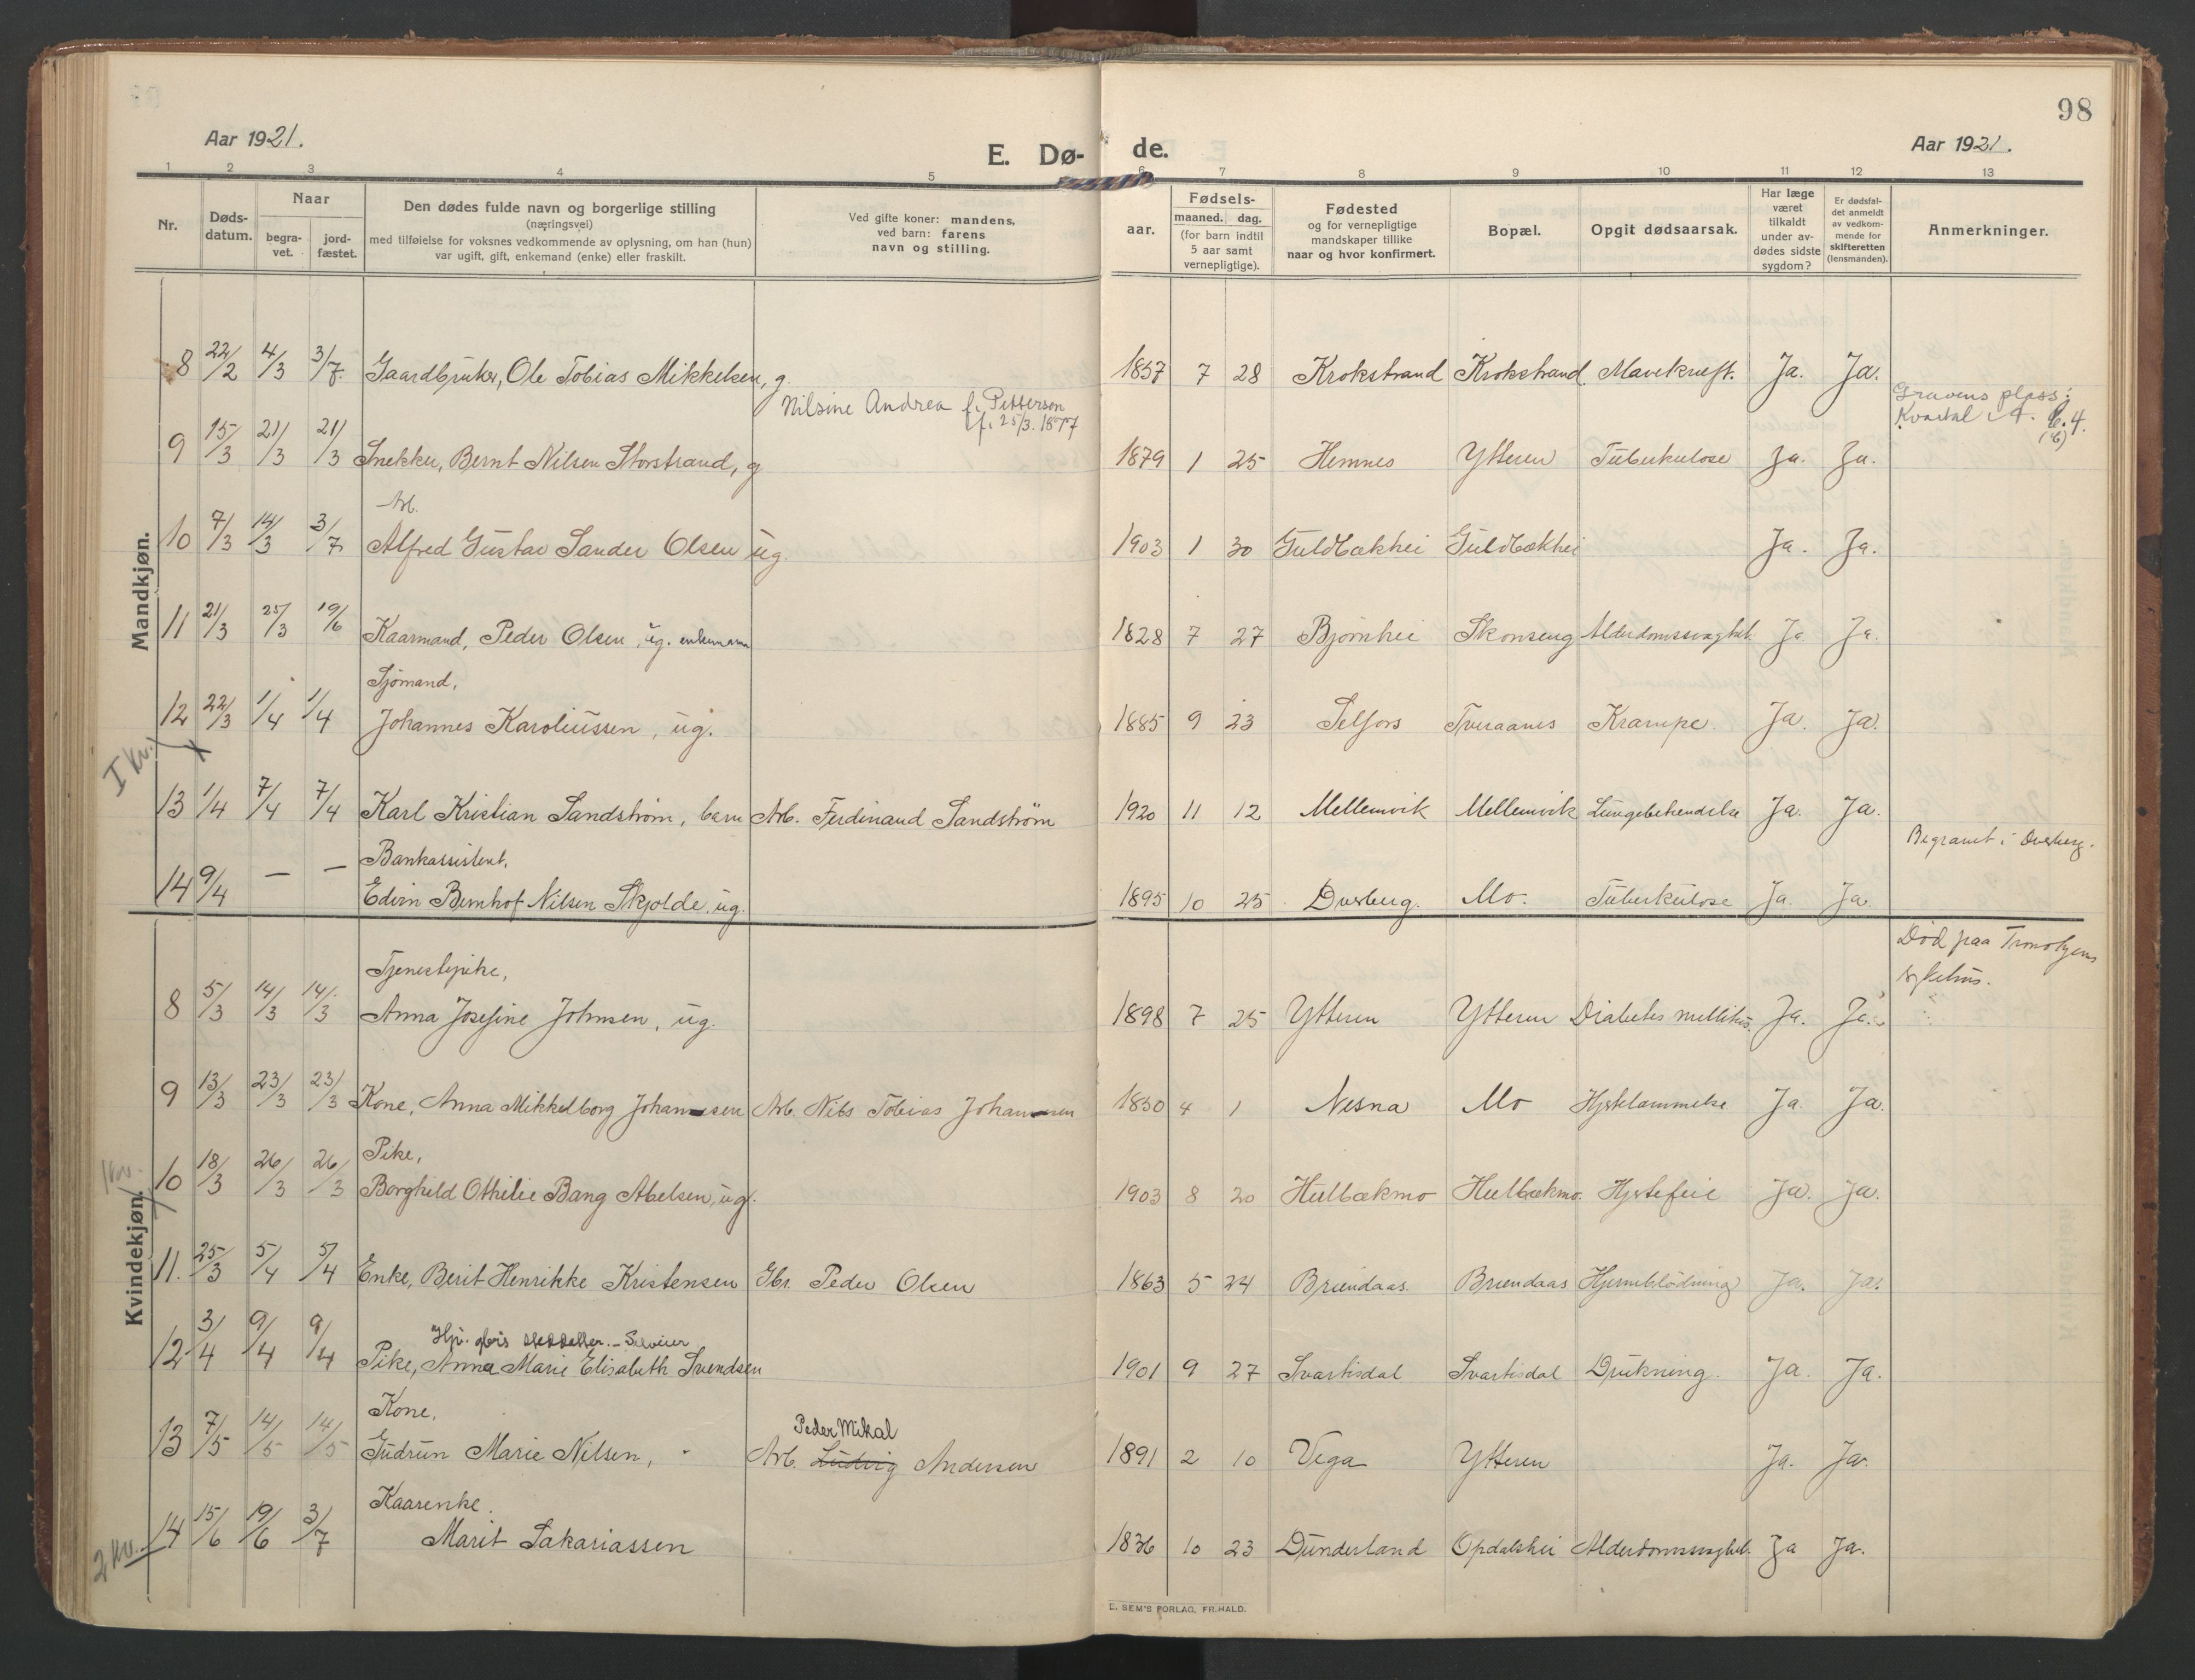 98
Aar 1921.
E. Dø- de.
Aar 1921.
1 2 3 4 5 6 7 8 9 10 11 12 13
Nr.
Døds-
datum.
Naar
begra-
vet.
jord-
fæstet.
Den dødes fulde navn og borgerlige stilling
(næringsvei)
med tilføielse for voksnes vedkommende av oplysning, om han (hun)
var ugift, gift, enkemand (enke) eller fraskilt.
Ved gifte koner: mandens,
ved barn: farens
navn og stilling.
aar.
Fødsels-
maaned. dag.
(for barn indtil
5 aar samt
vernepligtige).
Fødested
og for vernepligtige
mandskaper tillike
naar og hvor konfirmert.
Bopæl.
Opgit dødsaarsak.
Har læge
været
tilkaldt
under av-
dødes sidste
sygdom?
Er dødsfal-
det anmeldt
av vedkom-
mende for
skifteretten
(lensmanden).
Anmerkninger.
Mandkjøn.
8 22/2 4/3 3/7. Gaardbruker, Ole Tobias Mikkelsen, g. 1857 7 28 Krokstrand Krokstrand. Mavekræft. Ja. Ja.
Nilsine Andrea f. Pettersen
f. 25/3. 1877
Gravens plass:
Kvartal 4.
9 15/3 21/3 21/3 Snekker, Bernt Nilsen Storstrand, g 1879 1 25 Hemnes Ytteren Tuberkulose Ja. Ja.
Arb.
10 7/3 14/3 3/7 Alfred Gustav Sander Olsen ug. 1903 1 30 Guldbækhei Guldbækhei Ja. Ja.
11 21/3 25/3 19/6 Kaarmand, Peder Olsen, ug. enkemann 1828 7 27 Bjørnhei Skonseng Alderdomssvaghet Ja Ja.
Sjømand,
12 22/3 1/4 1/4 Johannes Karoliussen, ug. 1885 9 23 Selfors Tveraanes Krampe. Ja. Ja.
I Kv.
13 1/4 7/4 7/4 Karl Kristian Sandstrøm, barn Arb. Ferdinand Sandstrøm 1920 11 12 Mellemvik Mellemvik Lungebetendelse Ja. Ja.
Bankassistent,
Begravet i Dverberg.
14 9/4 — — Edvin Bernhof Nilsen Skjolde, ug. 1895 10 25 Dverberg. Mo. Tuberkulose Ja. Ja.
Kvindekjøn.
Død paa
sykehus.
Tjenestepike,
8 5/3 14/3 14/3 Anna Josefine Johnsen, ug. 1898 7 25 Ytteren Ytteren Diabetes mellitus. Ja. Ja.
9 13/3 23/3 23/3 Kone, Anna Mikkelborg Johansen Arb. Nils Tobias Johansen 1850 4 1 Nesna Mo Hjertelammelse Ja. Ja.
Pike,
10 18/3 26/3 26/3 Borghild Othilie Bang Abelsen, ug. 1903 8 20 Hulbækmo Hulbækmo. Hjertefeil Ja. Ja.
11. 25/3 5/4 5/4 Enke, Berit Henrikke Kristensen Gbr. Peder Olsen 1863 5 24 Brændaas. Brændaas Hjerneblødning Ja. Ja.
12 3/4 9/4 9/4 Pike, Anna Marie Elisabeth Svendsen 1901 9 27 Svartisdal Svartisdal Drukning. Ja. Ja.
Kone,
Peder Mikal
13 7/5 14/5 14/5 Gudrun Marie Nilsen, Arb. Ludvig Andersen 1891 2 10 Vega Ytteren Ja. Ja.
Kaarenke.
2 Kv.
14 15/6 19/6 3/7 Marit Sakariassen 1836 10 23 Dunderland Opdalshei Alderdomssvaghet. Ja Ja.
E. SEM'S FORLAG, FR.HALD.